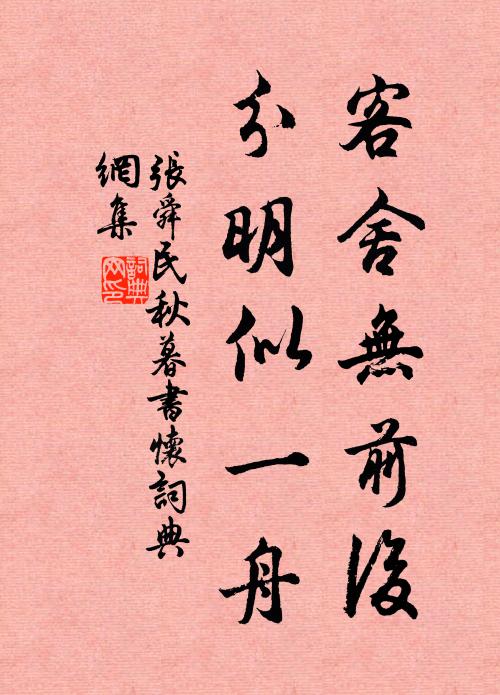 客舍無前後
分明似一舟
張舜民秋暮書懷詞典
網集
詞典網印